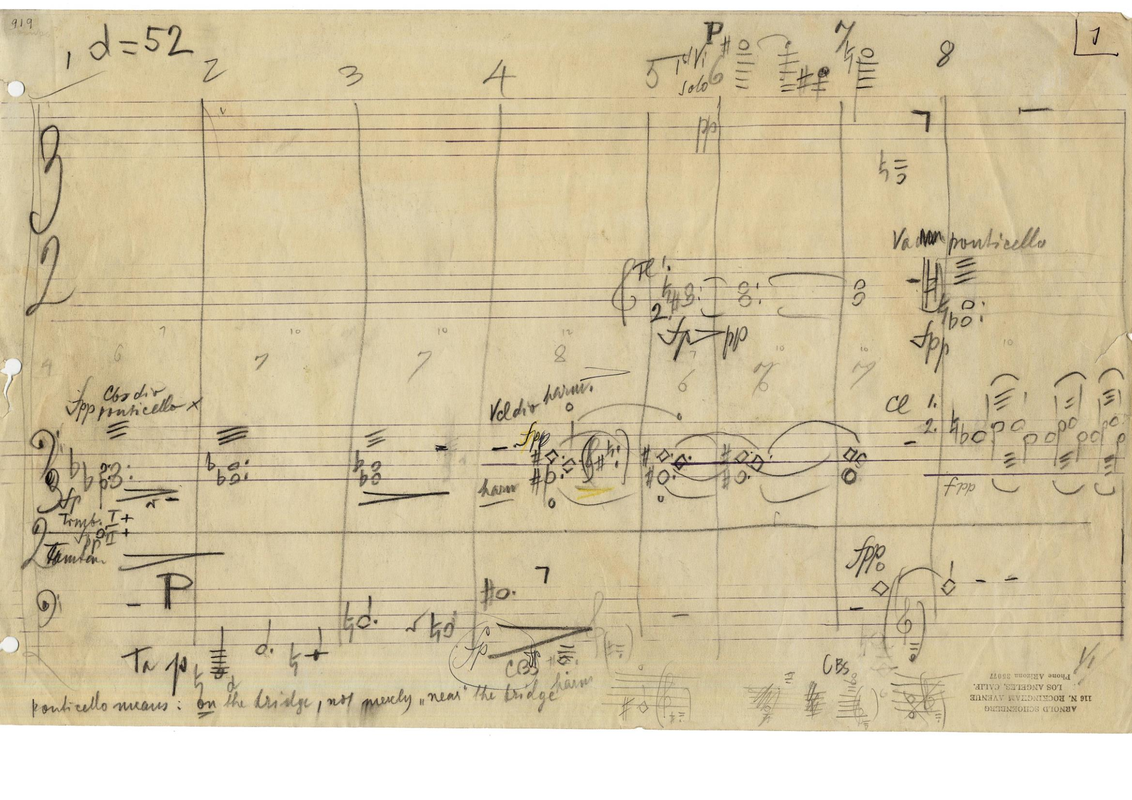 919
1
, d=52
2 3 4 5 6 7 8
Id Vi
solo
P
pp
7
3
2
Va ponticello
Fl 1.
2.
fp > pp
fpp
7 10 10 12 10 10 10
6 7 7 8 6 7
Cbs div
fpp ponticello x
Vcl div harm.
fpp
Cl 1.
2.
fpp
3
2
fp
harm
Tromb. I +
fp II +
Tamtam.
P
7
fpp
Ta p
fp
CBS
harm
CBS
ponticello means: on the bridge, not merely „near" the bridge
ARNOLD SCHOENBERG
116 N. ROCKINGHAM AVENUE
LOS ANGELES, CALIF.
Phone ARizona 35077